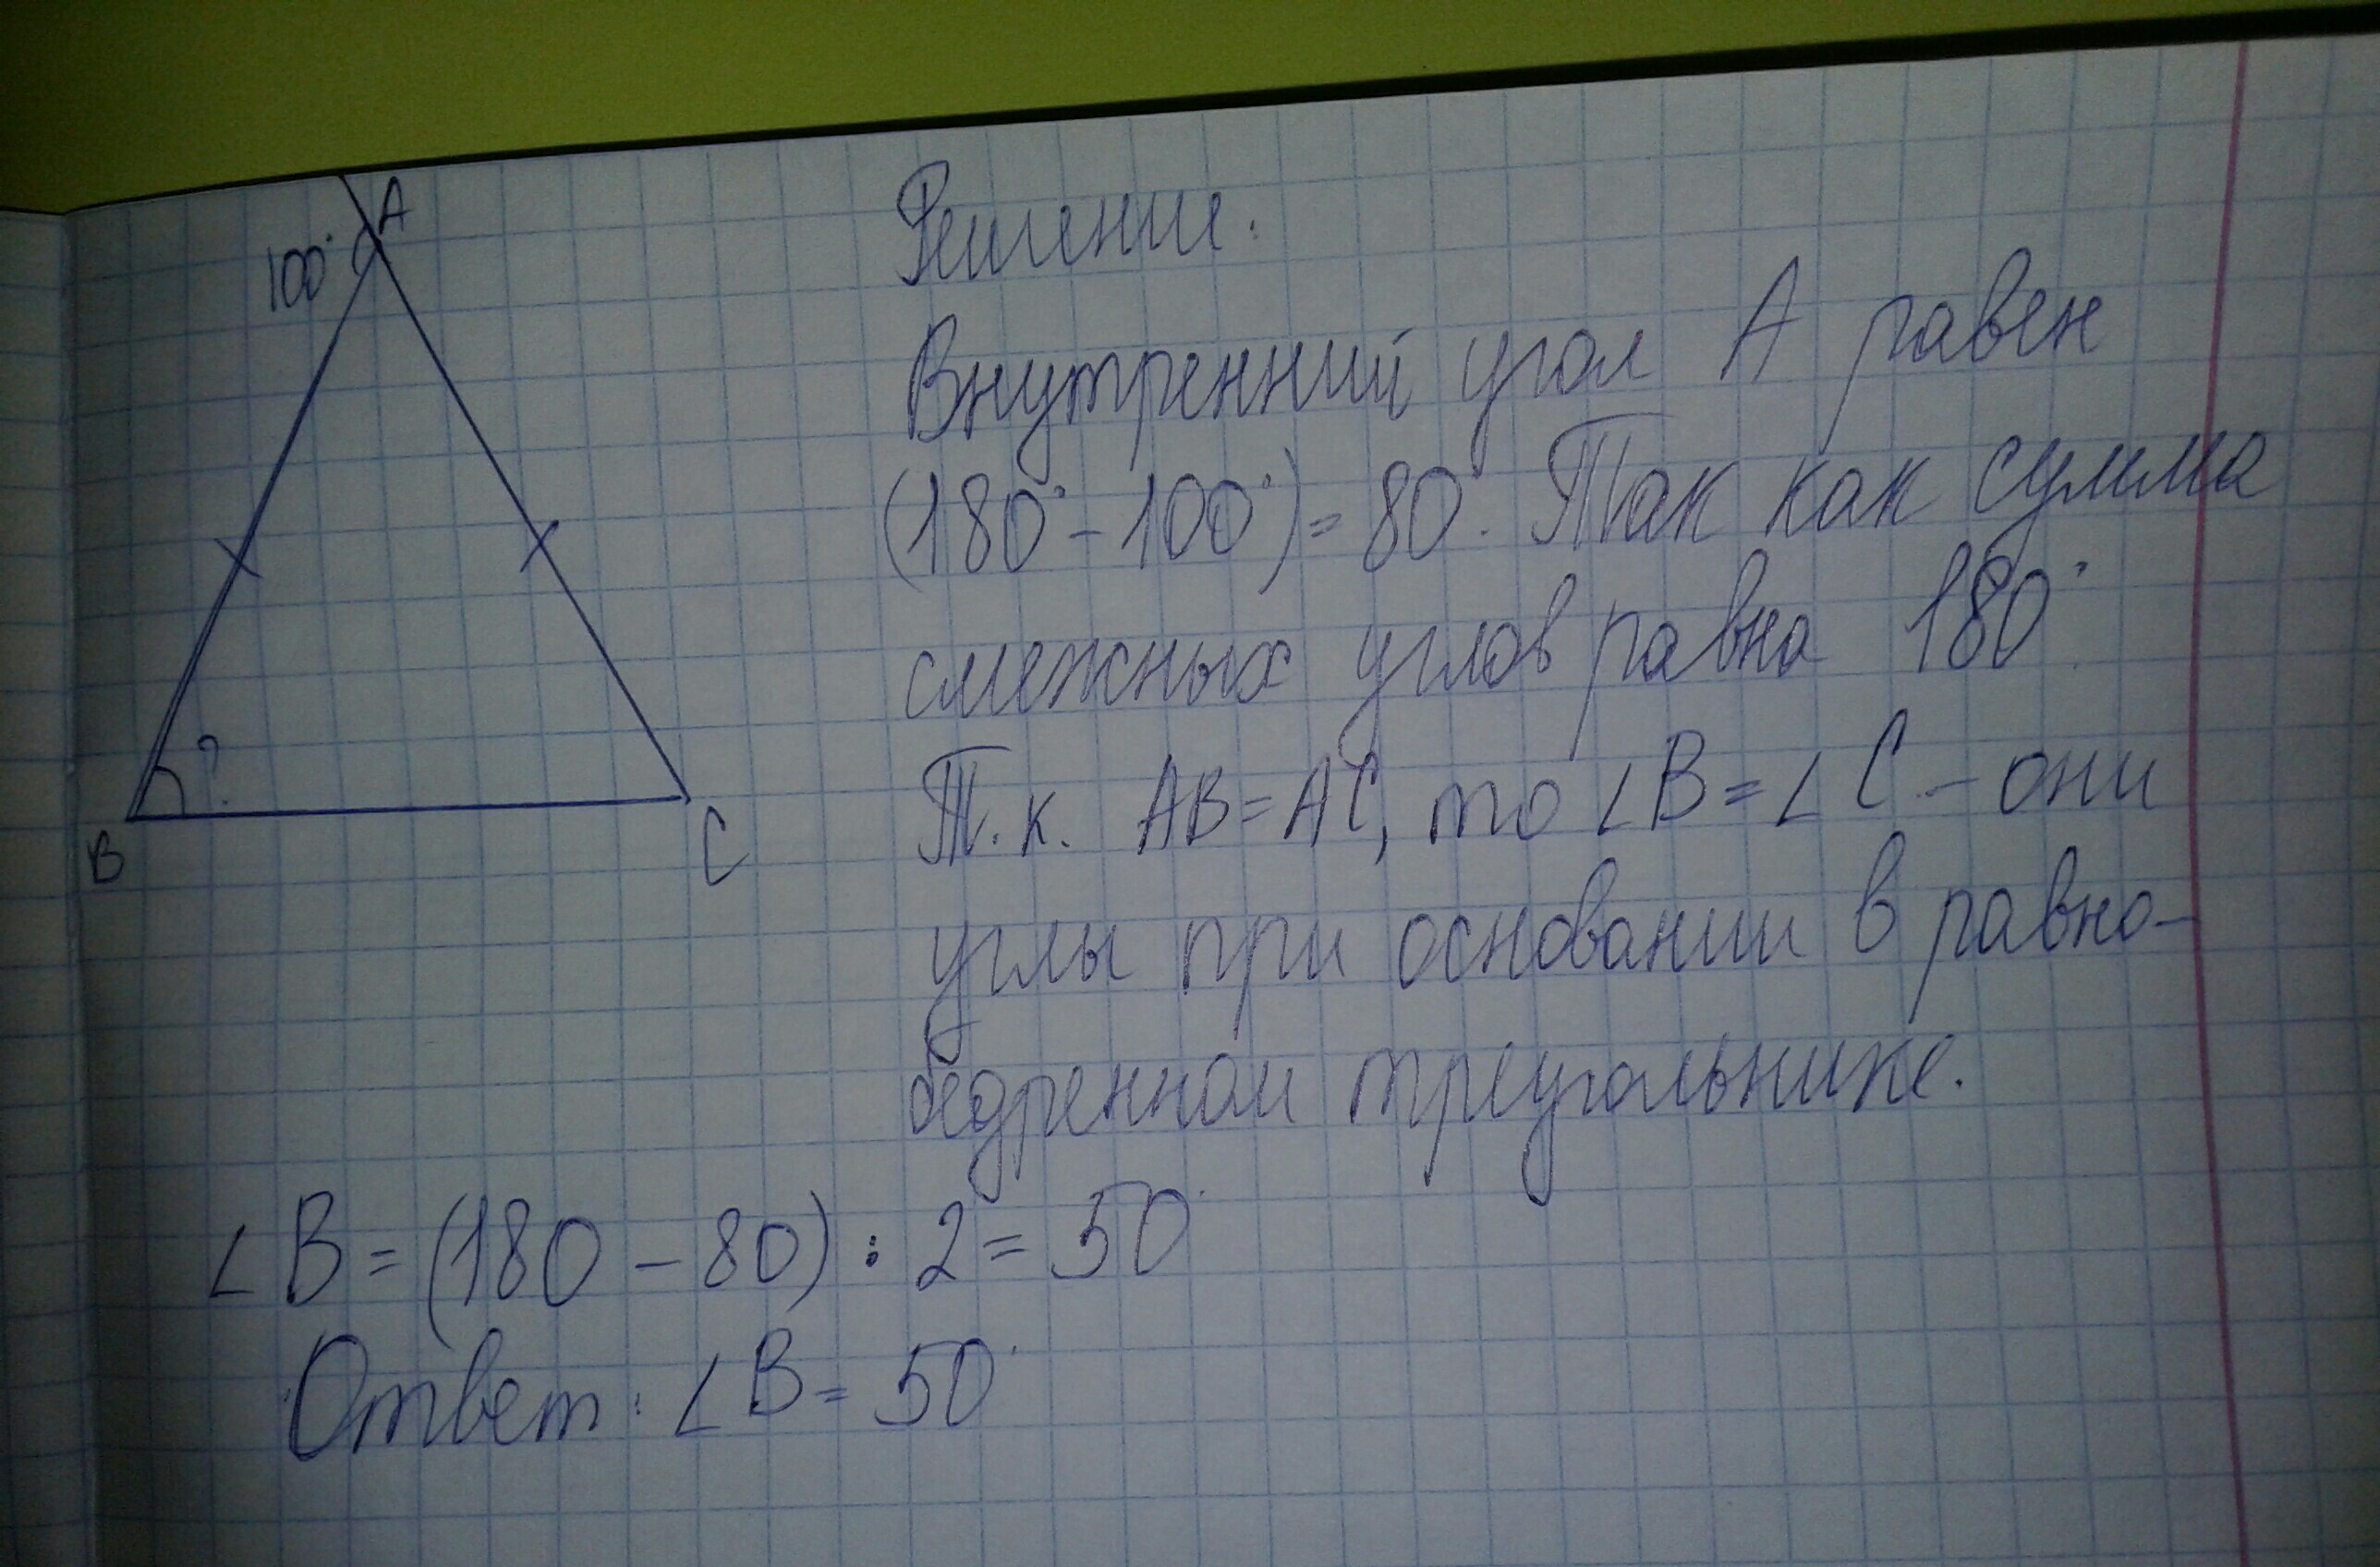 A
100°
?
B
C
Решение.
Внутренний угол А равен
(180° - 100°) = 80°. Так как сумма
смежных углов равна 180°
Т.к. АВ = АС, то ∠В = ∠С - они
углы при основании в равно-
бедренном треугольнике.
∠В = (180 - 80) : 2 = 50°
Ответ: ∠В = 50°